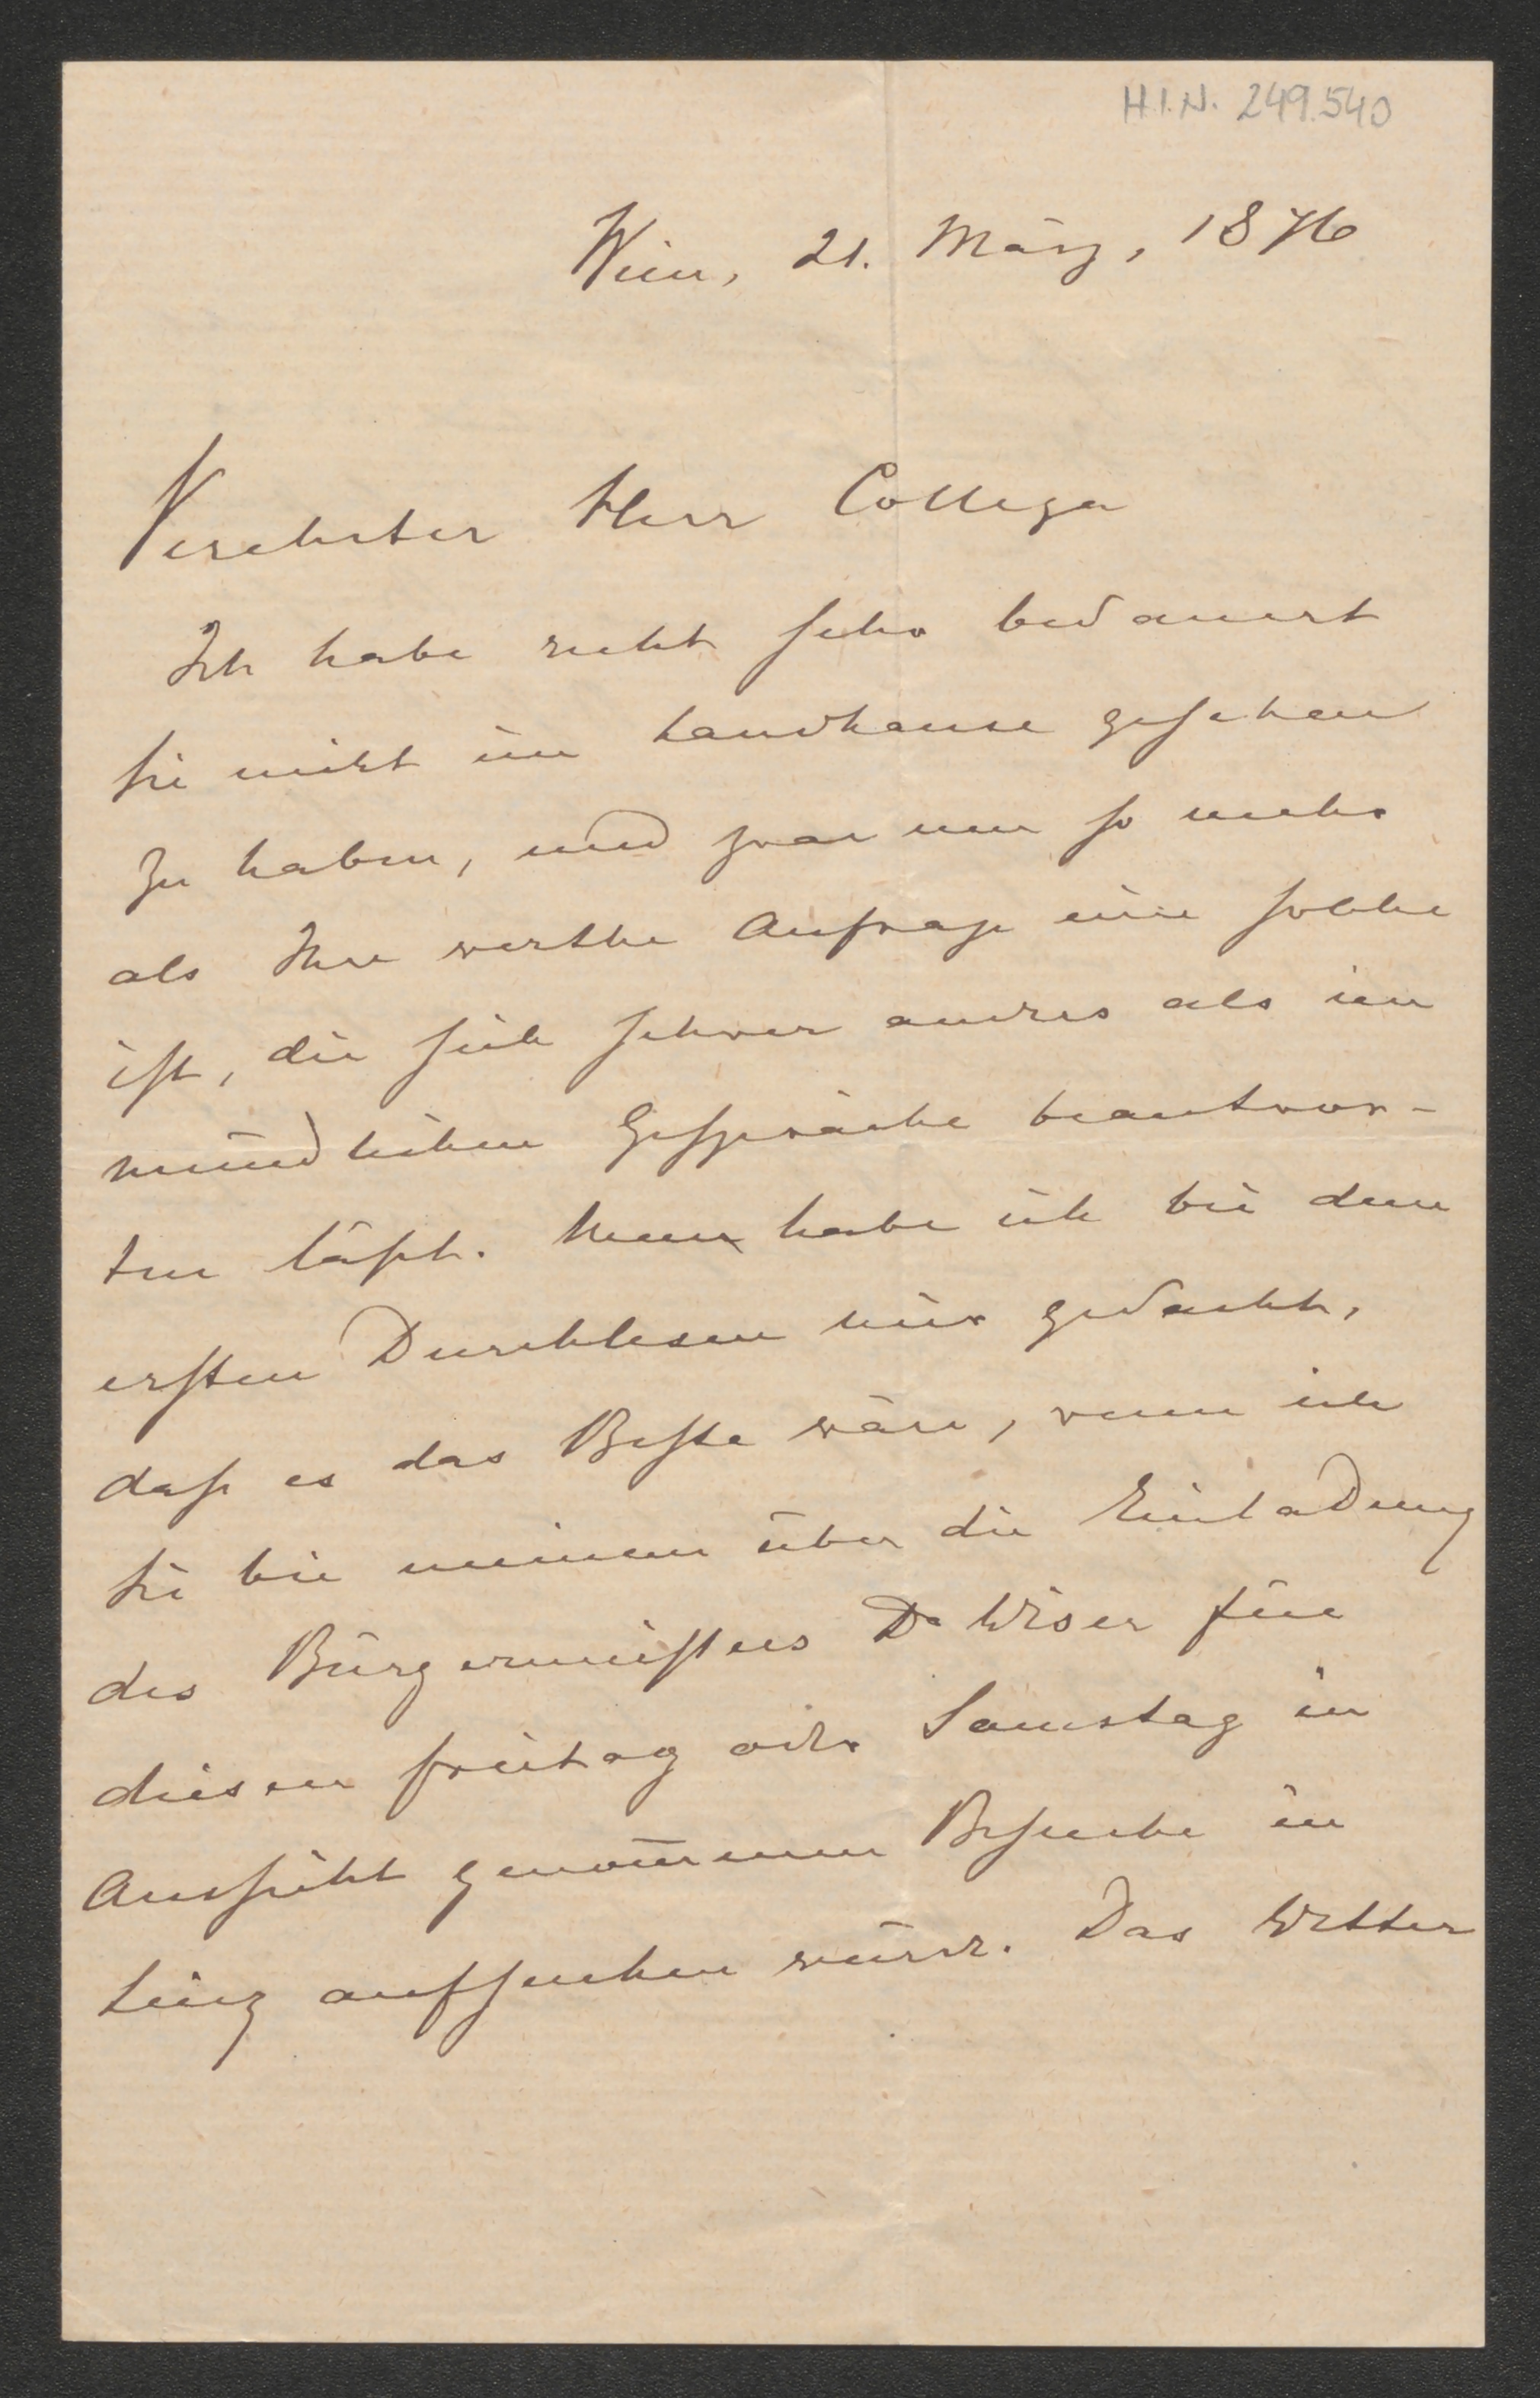 H.I.N. 249.540
Wien, 21. März, 1876
Verehrter Herr Collega
Ich habe recht sehr bedauert
Sie nicht im Landhause gesehen
zu haben, und zwar um so mehr
als Ihre werthe Anfrage eine solche
ist, die sich schwer andres als im
mündlichen Gespräche beantwor-
ten läßt. Nun habe ich bei dem
ersten Durchlesen mir gedacht,
daß es das Beste wäre, wenn ich
Sie bei meinem über die Einladung
des Bürgermeisters Dr Wiser für
diesen Freitag oder Samstag in
Aussicht genom̅enen Besuche in
Linz aufsuchen würde. Das Wetter